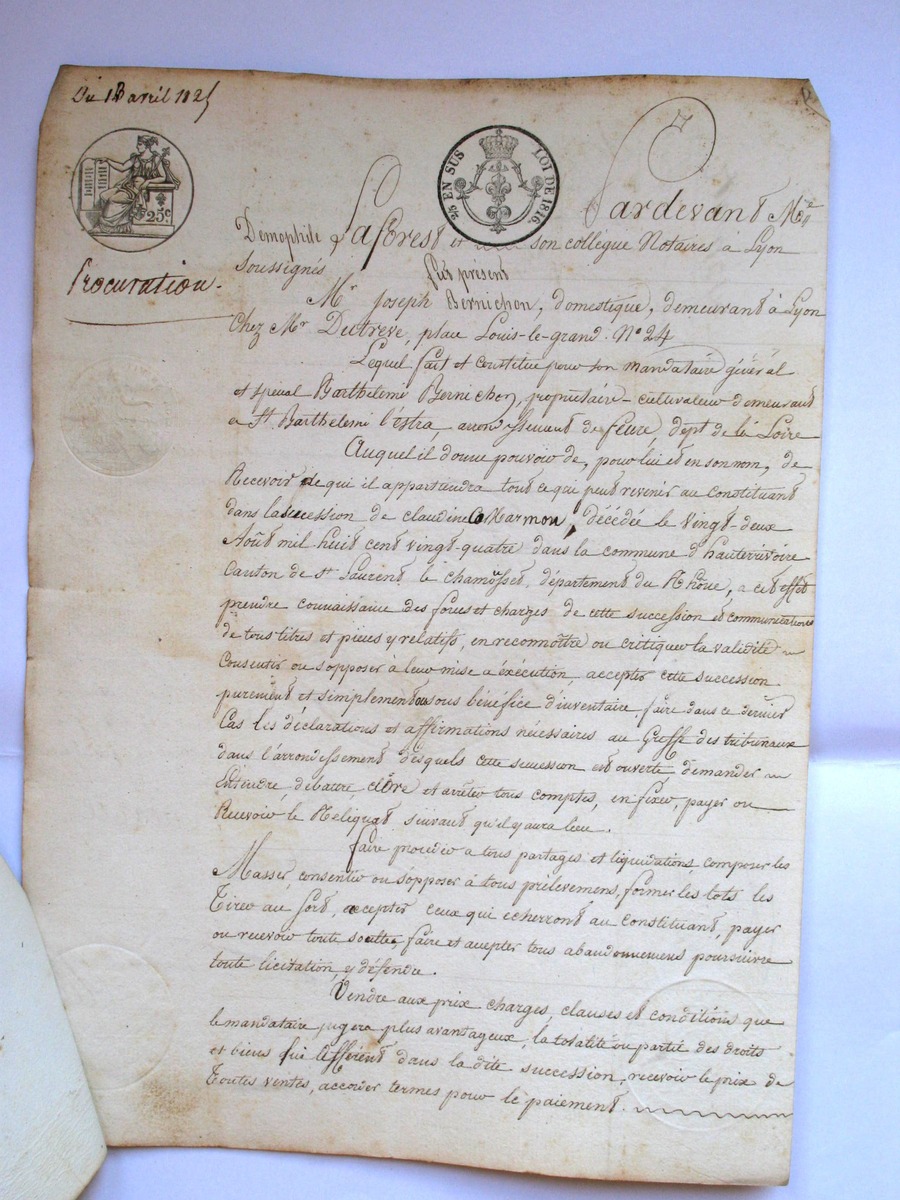 Du 18 avril 1825
25 EN SUS LOI DE 1816
25c
Procuration.
Pardevant Me
Demophile Laforest et son collègue Notaires à Lyon
Soussignés
fut présent
Mr Joseph Bernichon, domestique, demeurant à Lyon
Chez Mr Dutreve, place Louis-le-grand. No 24
Lequel fait et constitue pour son mandataire général
et special Barthelemi Bernichon, propriétaire-cultivateur demeurant
a St. Barthelemi l'estra, arrondissement de feure, dept de la Loire
Auquel il donne pouvoir de, pour lui et en son nom, de
Recevoir de qui il appartiendra tout ce qui peut revenir au Constituant
dans la succession de claudine Marmon, décédée le vingt-deux
Août mil huit cent vingt-quatre dans la commune d'hauterivoire
Canton de St Laurent le chamousset, département du Rhône, a cet effet
prendre connaissance des forces et charges de cette succession et communications
de tous titres et pièces y relatifs, en reconnoître ou critiquer la validité
Consentir ou s'opposer à leur mise a éxécution, accepter cette succession
purement et simplement ou sous bénéfice d'inventaire, faire dans ce dernier
Cas les déclarations et affirmations nécessaires au Greffe des tribunaux
dans l'arrondissement desquels cette succession est ouverte, demander
Entendre, débattre, clore et arrêter tous comptes, en fixer, payer ou
Recevoir le Reliquat suivant qu'il y aura lieu.
faire procéder a tous partages et liquidations, composer les
Masses, consentir ou s'opposer à tous prélevemens, former les lots les
Tirer au sort, accepter ceux qui echerront au constituant, payer
ou recevoir toute soultes, faire et accepter tous abandonnemens poursuivre
toute licitation, y défendre.
Vendre aux prix charges, clauses et conditions que
le mandataire jugera plus avantageux, la totalité ou partie des droits
et biens qui lui affèrent dans la dite succession, recevoir le prix de
Toutes ventes, accorder termes pour le paiement.